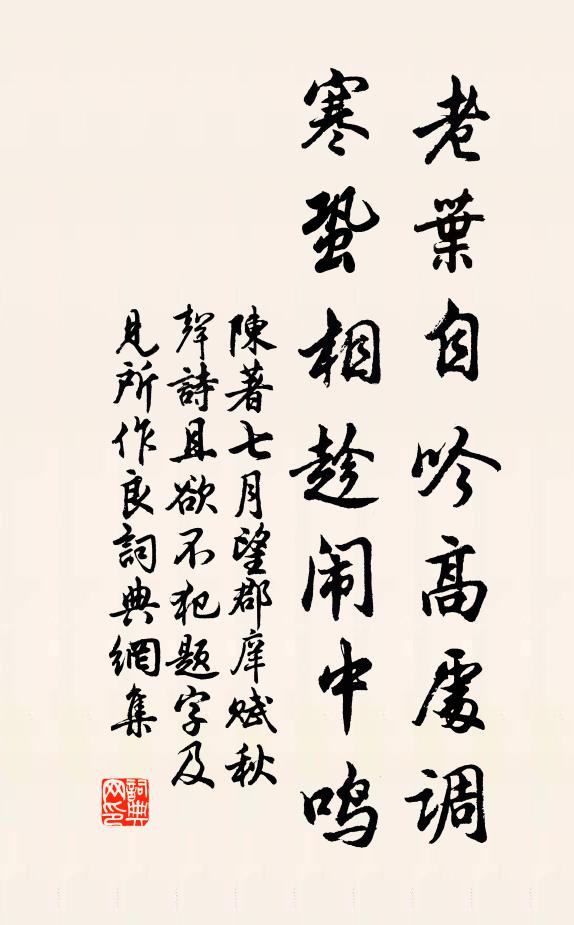 老葉自吟高處调
寒蛩相趁闹中鸣
陳著七月望郡庠赋秋
聲詩且欲不犯题字及
見所作良詞典網集
詞典网印